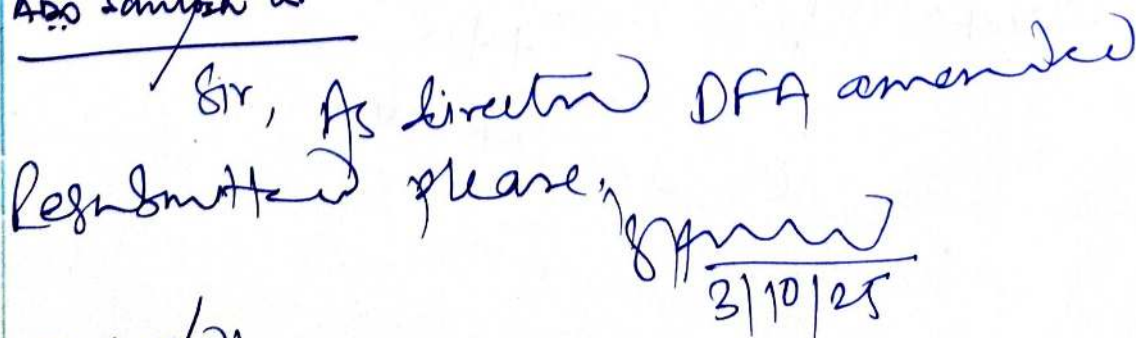 ADO Santosh
Sir, As directed DFA amended
Resubmitted please,
3/10/25